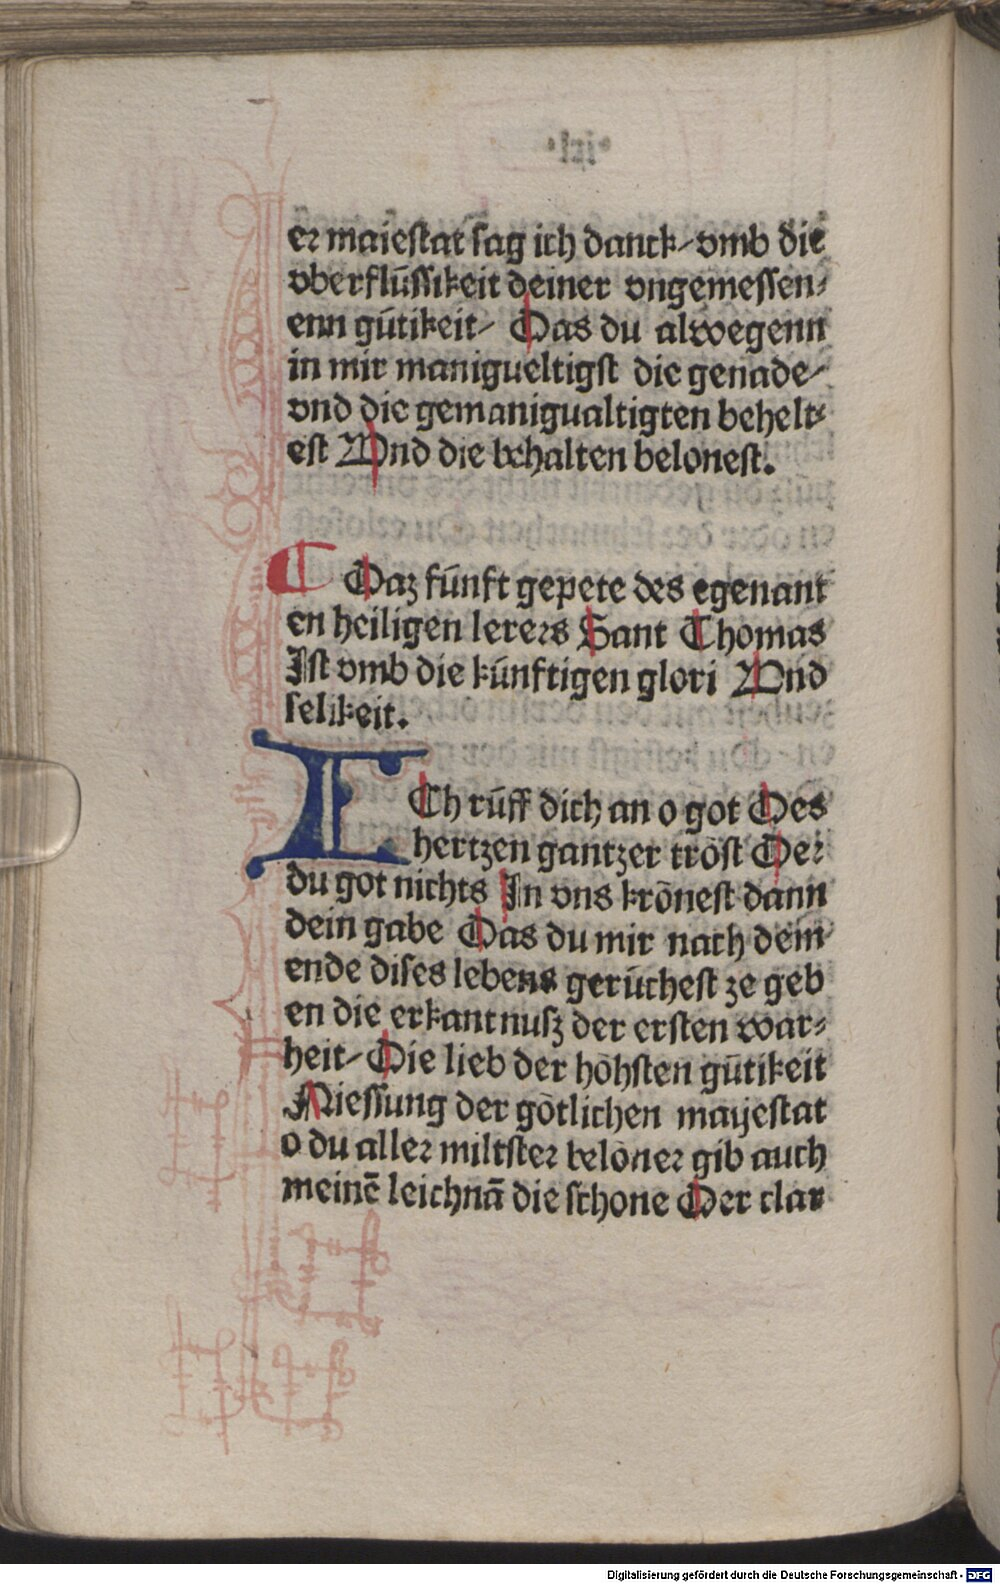 er maiestat sag ich danck/ vmb die
vberflüssikeit deiner vngemessen⸗
enn gütikeit/ Das du alwegenn
in mir manigueltigst die genade/
vnd die gemanigualtigten behelt⸗
est Vnd die behalten belonest.
Daz fünft gepete des egenant
en heiligen lerers Sant Thomas
Ist vmb die künftigen glori Vnd
selikeit.
ICh rüff dich an o got Des
hertzen gantzer tröst Der
du got nichts In vns krönest dann
dein gabe Das du mir nach dem
ende dises lebens gerüchest ze geb
en die erkantnusz der ersten war⸗
heit/ Die lieb der höhsten gütikeit
Niessung der götlichen mayestat
o du aller miltster beloner gib auch
meinē leichnā die schone Der clar
Digitalisierung gefördert durch die Deutsche Forschungsgemeinschaft - DFG